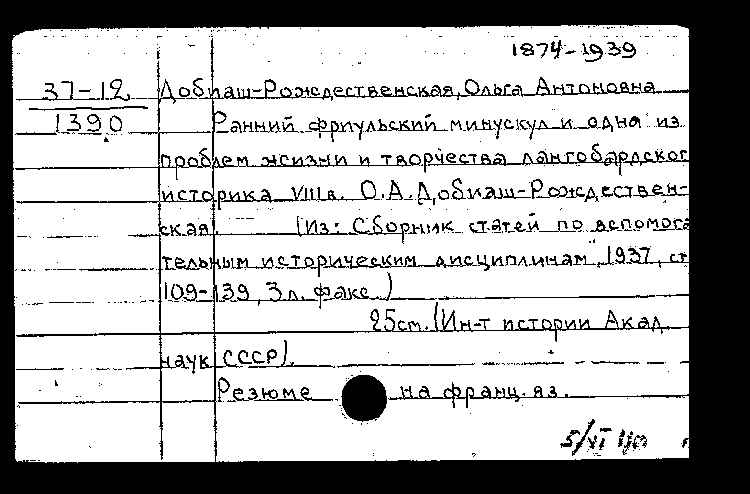 1874-1939
37-12 Добиаш-Рождественская, Ольга Антоновна
1390 Ранний фриульский минускул и одна из
проблем жизни и творчества лангобардског
историка VIII в. О.А. Добиаш-Рождествен-
ская. (Из: Сборник статей по вспомога
тельным историческим дисциплинам", 1937, ст
109-139, 3 л. факс.)
25 cm. (Ин-т истории Акад.
наук СССР).
Резюме на франц. яз.
5/VI